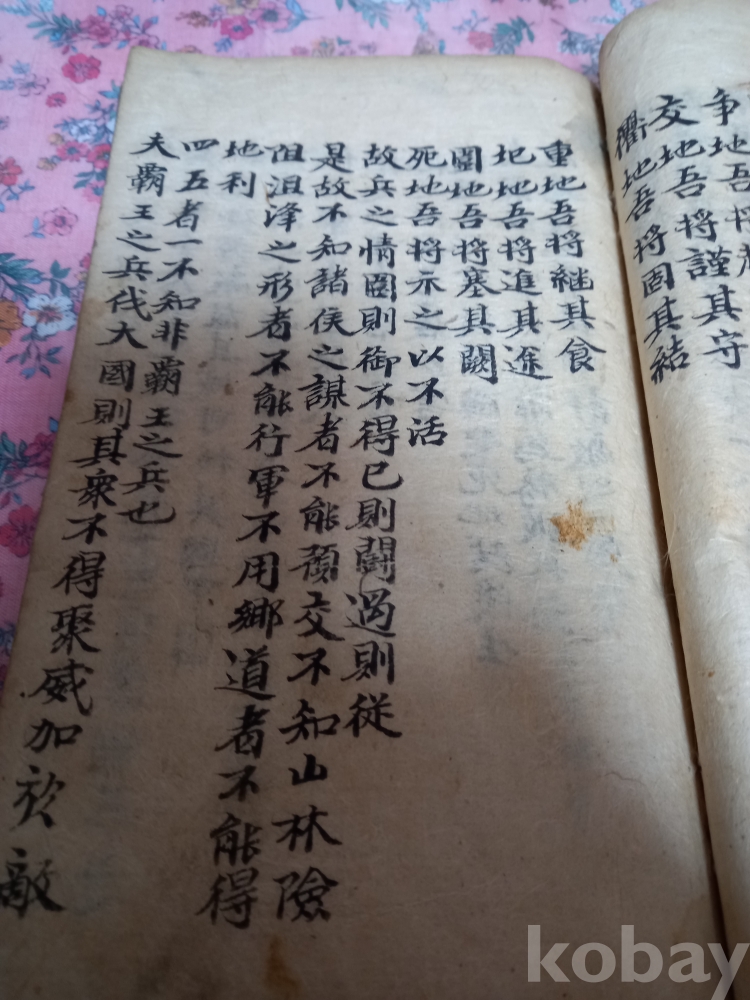 爭地吾將
交地吾將謹其守
衢地吾將固其結
重地吾將継其食
圯地吾將進其途
圍地吾將塞其闕
死地吾將示之以不活
故兵之情圍則御不得已則鬪過則從
是故不知諸侯之謀者不能預交不知山林險
阻沮澤之形者不能行軍不用鄉道者不能得
地利
四五者一不知非霸王之兵也
夫霸王之兵伐大國則其衆不得聚威加於敵
kobay